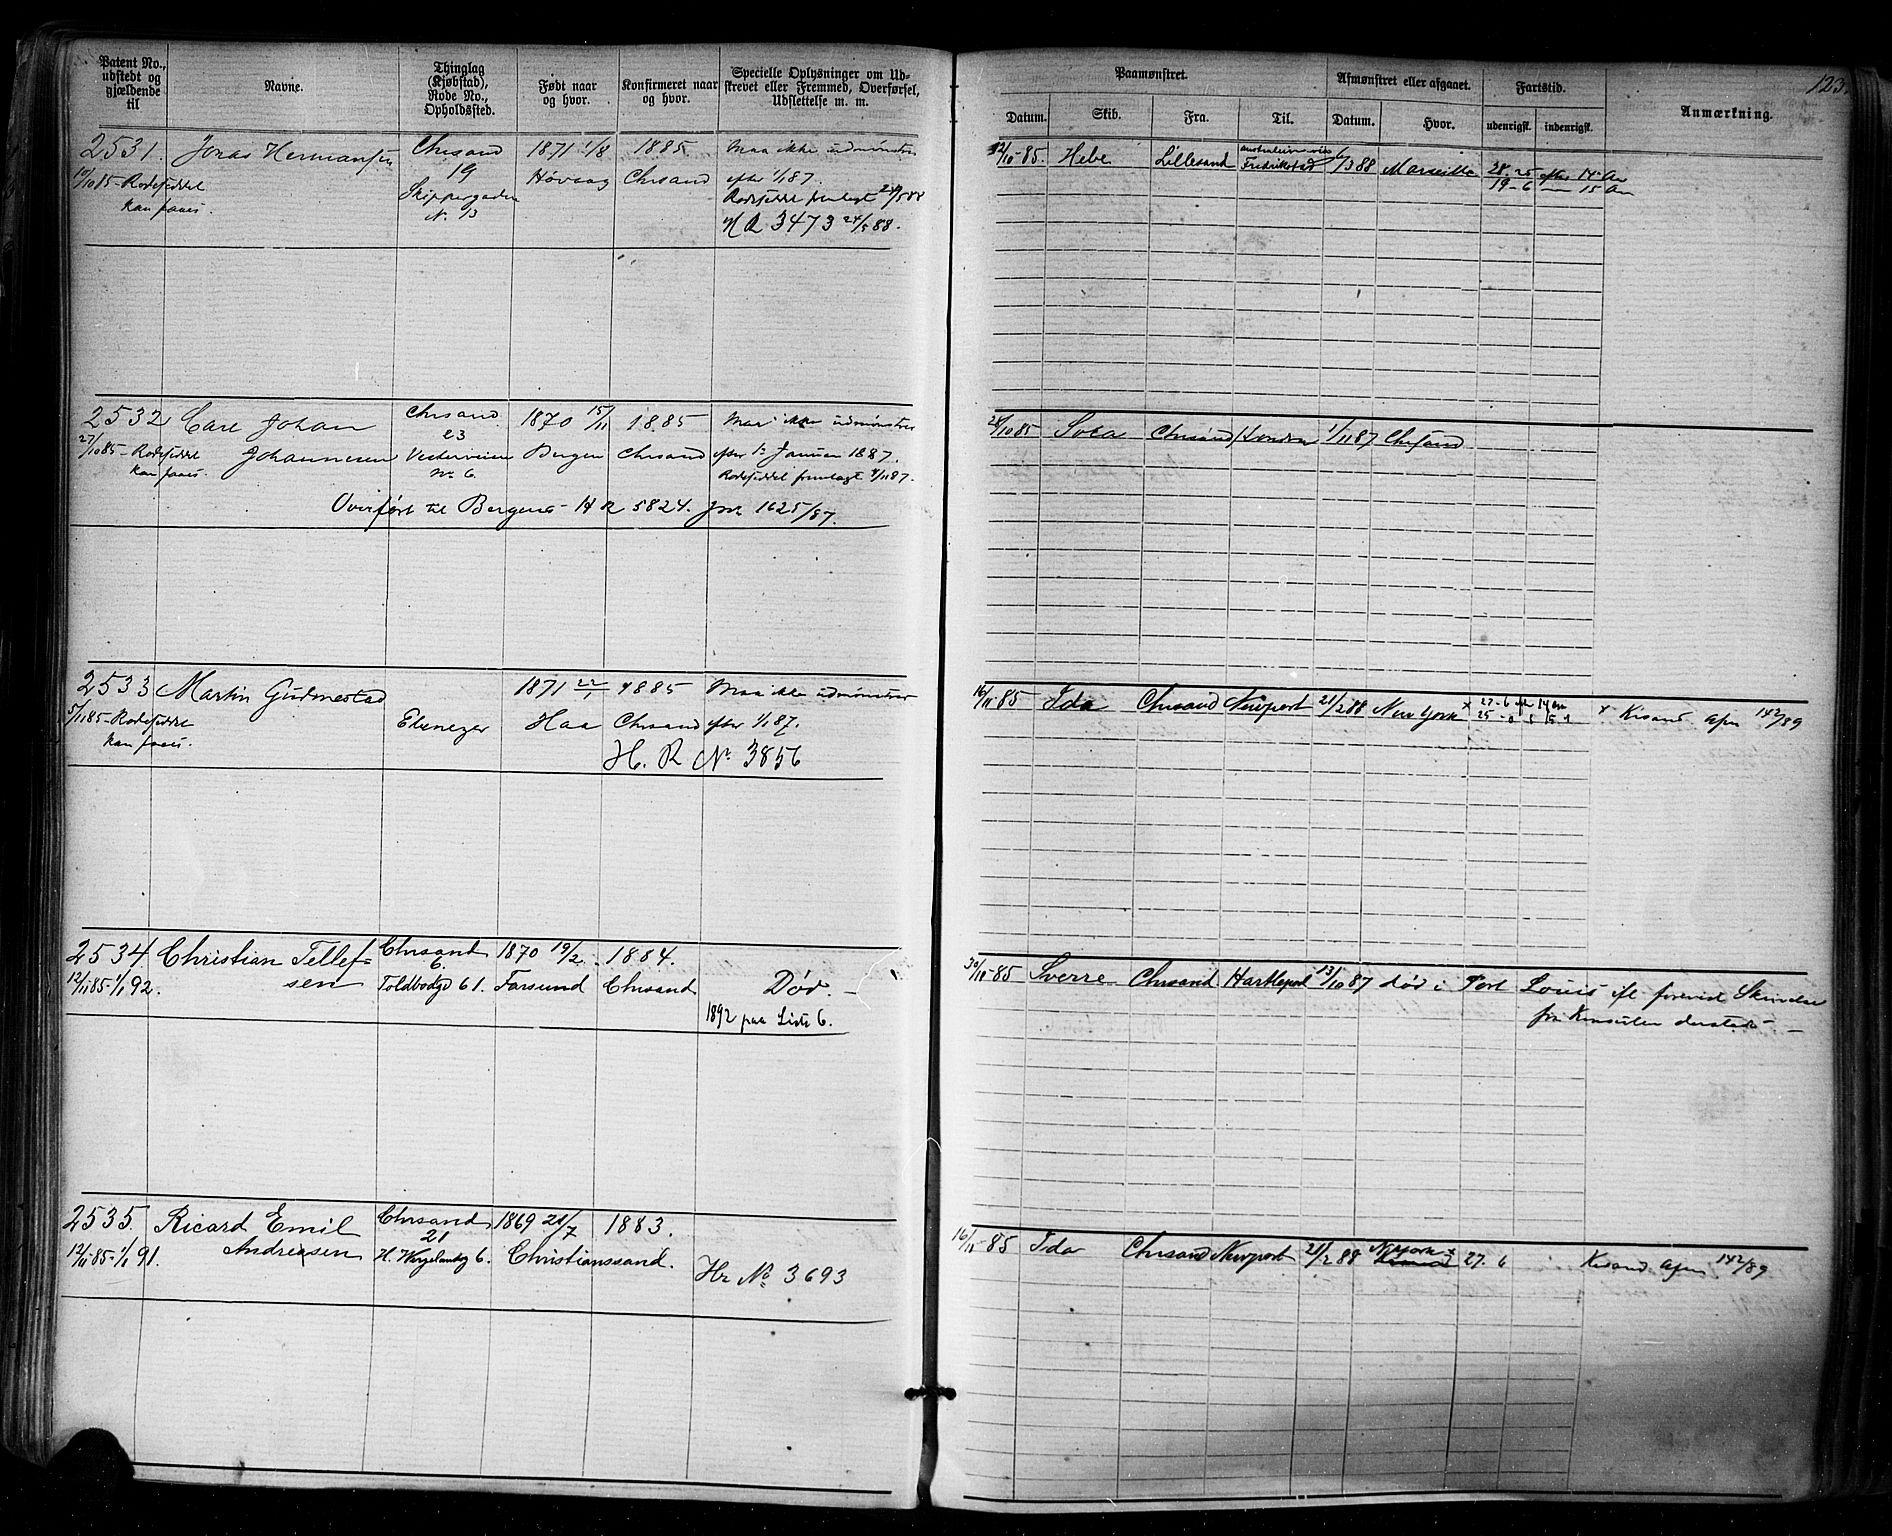 Patent No., udstedt og gjældende til
Navne.
Thinglag (Kjøbstad), Rode No., Opholdssted.
Født naar og hvor.
Konfirmeret naar og hvor.
Specielle Oplysninger om Udskrevet eller Fremmed, Overførsel, Udslettelse m. m.
Paamønstret.
Afmønstret eller afgaaet.
Fartstid.
Anmærkning.
123.
Datum.
Skib.
Fra.
Til.
Datum.
Hvor.
udenrigsk.
indenrigsk.
2531. Jonas Hermansen Chrsand 1871 1/8 1885. Maa ikke udmønstres
Rodeseddel 19 Høvaag Chrsand efter 1/1 87.
kan faaes. Skippergaden Rodeseddel fremlagt 24/5 88
N. 13 H R 3473 24/5 88.
12/10-85. Hebe Lillesand Fredrikstad /3 88 Marseille 28-25 efter 14 Aar
19-6 — 15 Aar
2532 Carl Johan Chrsand 1870 15/11 1885 Maa ikke udmønstres
27/10 85- Rodeseddel Johannesen 23 Bergen Chrsand efter 1ste Januar 1887.
kan faaes. Vesterveien Rodeseddel fremlagt /11 87.
No 6.
Overført til Bergens H R 5824. Jnr 1625/87.
28/10 85 Svea Chrsand London 1/11 87 Chrsand
2533 Martin Gudmestad 1871 22/1 1885 Maa ikke udmønstres
5/11 85- Rodeseddel Ebenezer Haa Chrsand efter 1/1 87.
kan faaes. H. R No 3856
16/11 85 Ida Chrsand Newport 21/2 88 New York x 27-6 14
x Krsand 142/89
2534. Christian Tellef- Chrsand 1870 19/2 1884.
sen 6.
12/11 85-1/1 92. Toldbodgd 61. Farsund Chrsand Død.
1892 paa Liste 6.
30/11-85 Sverre Chrsand Hartlepool 13/10 87 død i Port Louis ifl. forevist Skrivelse
fra Konsulen dersteds
2535. Ricard Emil Chrsand 1869 21/7 1883.
Andreasen 21
12/11-85-1/1 91. H. Wergelandsg 6. Christianssand. Hr No 3693
16/11-85 Ida Chrsand Newport 21/2 88 N.york x 27. 6 Krsand 142/89